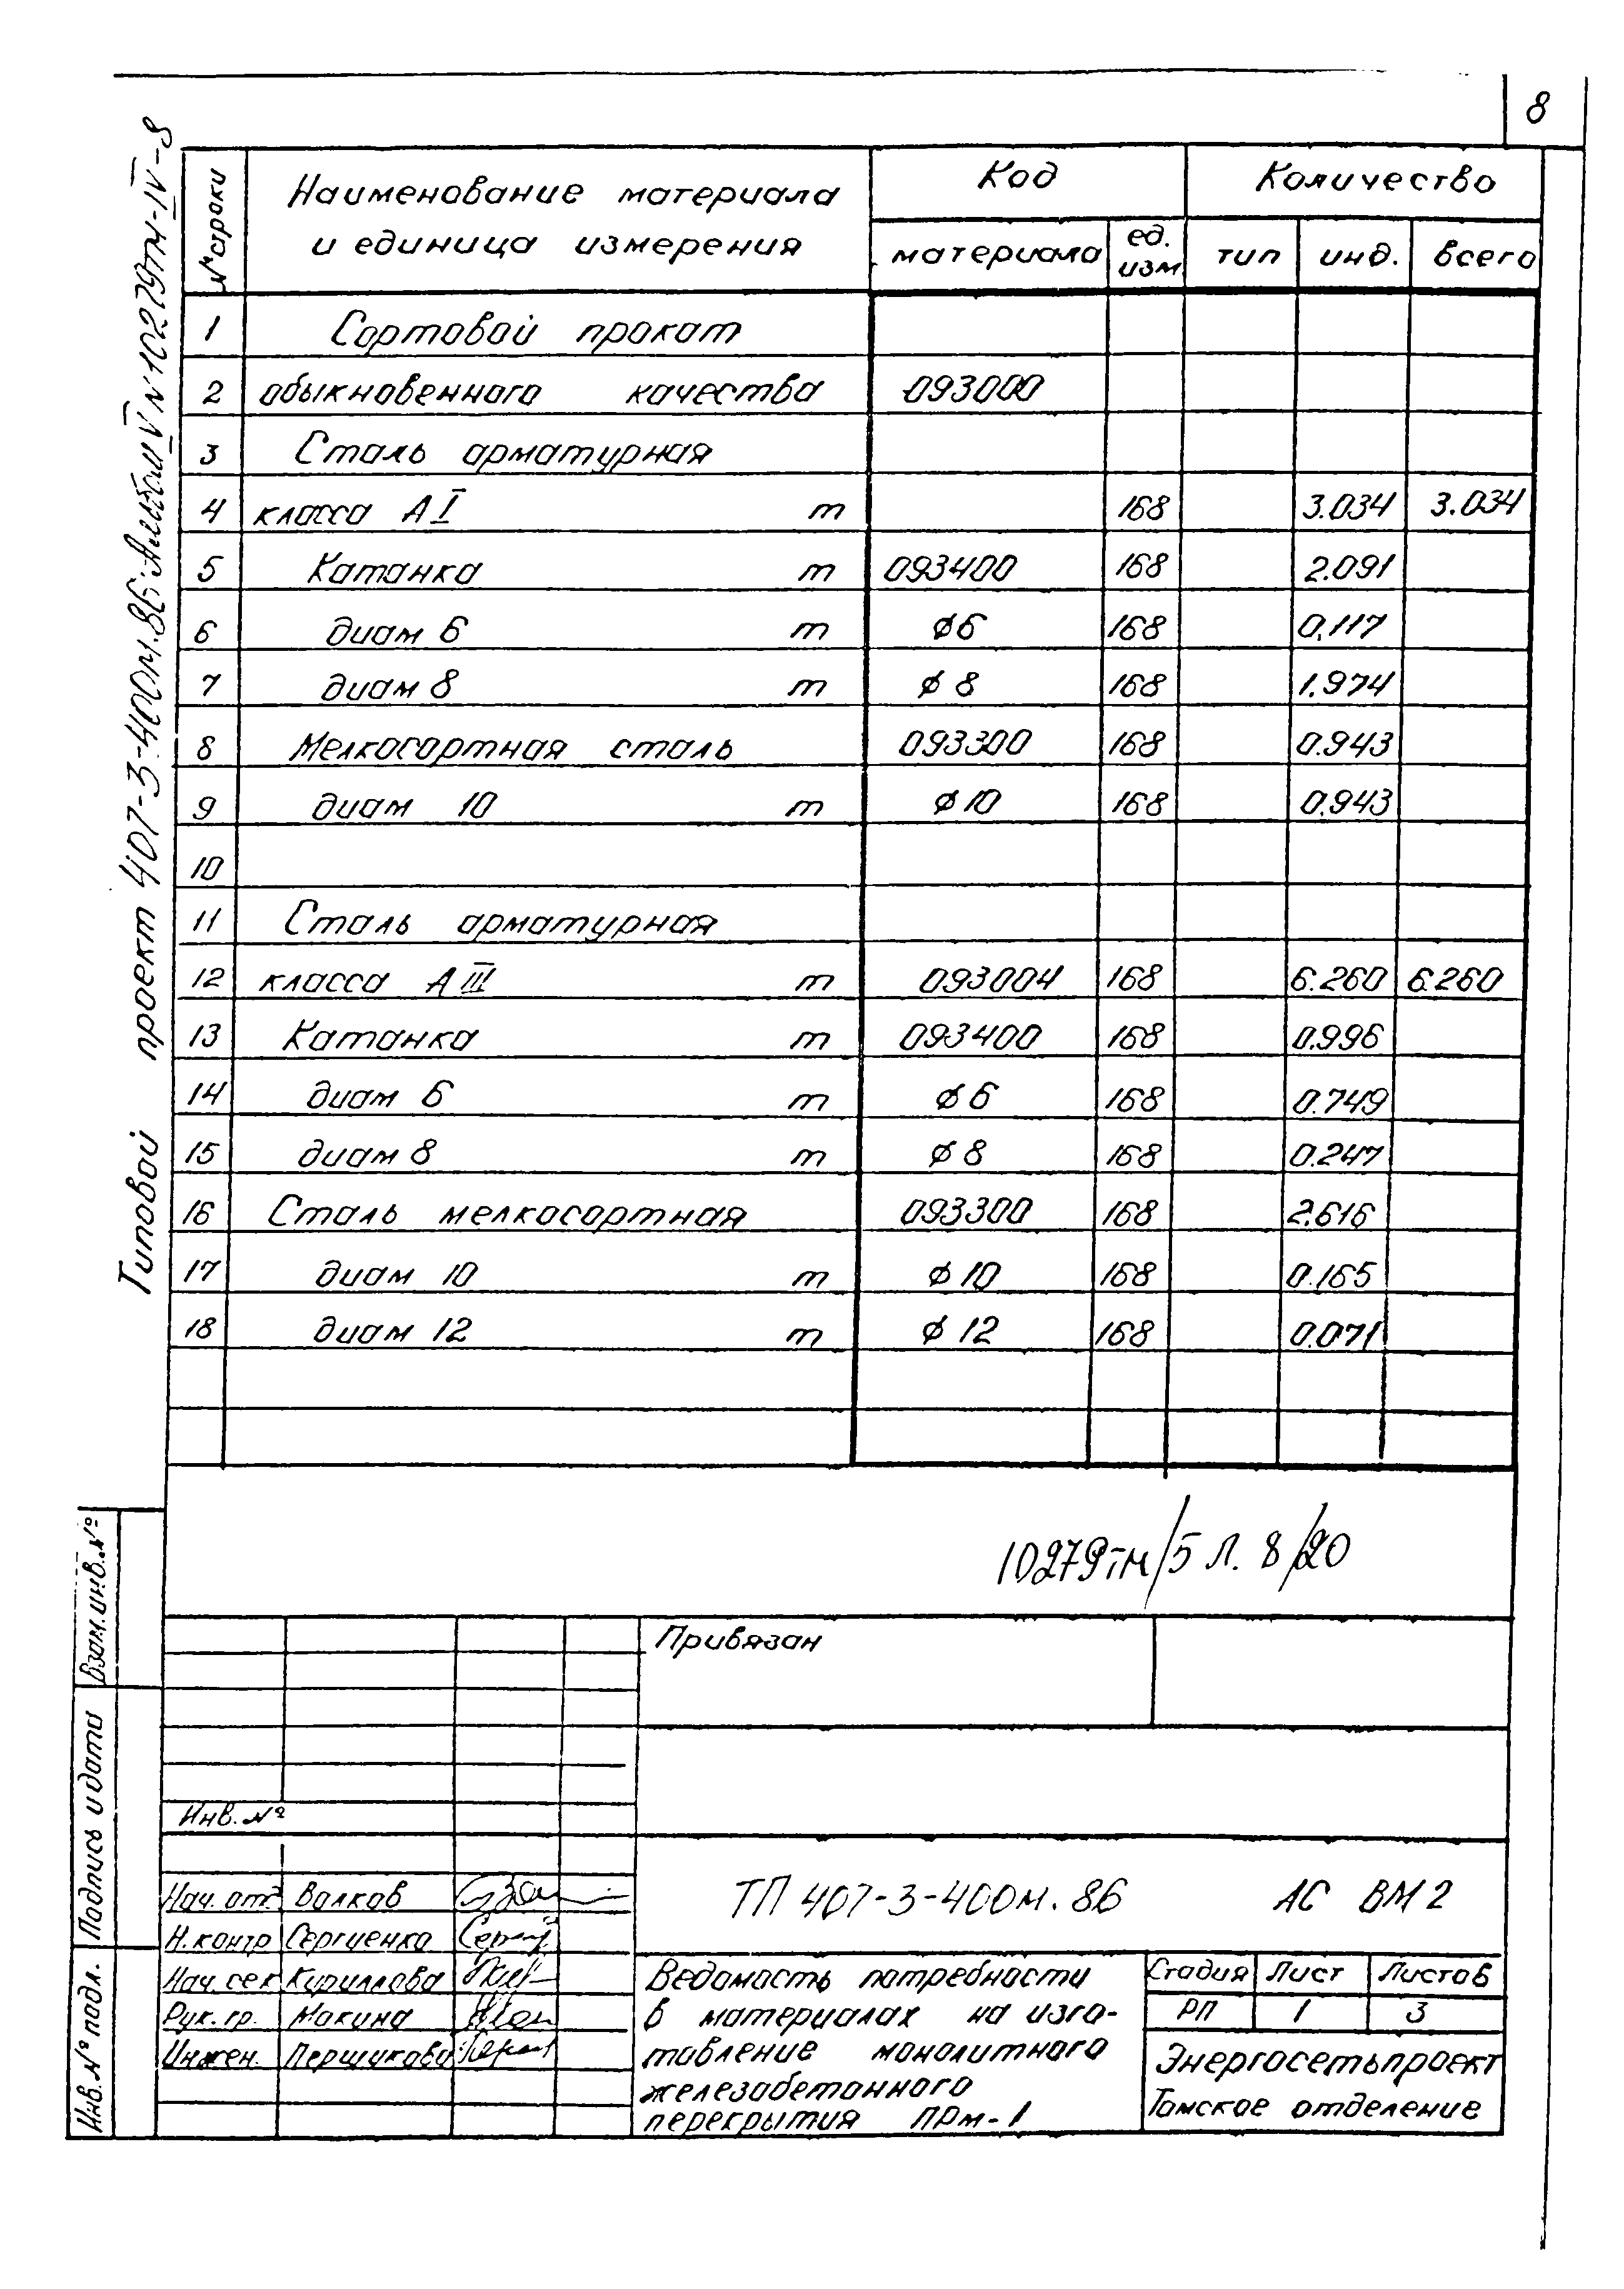 8
Типовой проект 407-3-400м.86. Альбом V N10279тм-IV-8
N строки
Наименование материала и единица измерения
Код
Количество
материала
ед. изм
тип
инд.
всего
1 Сортовой прокат
2 обыкновенного качества 093000
3 Сталь арматурная
4 класса АI т 168 3.034 3.034
5 Катанка т 093400 168 2.091
6 диам 6 т ϕ6 168 0.117
7 диам 8 т ϕ 8 168 1.974
8 Мелкосортная сталь 093300 168 0.943
9 диам 10 т ϕ 10 168 0.943
10
11 Сталь арматурная
12 класса А III т 093004 168 6.260 6.260
13 Катанка т 093400 168 0.996
14 диам 6 т ϕ 6 168 0.749
15 диам 8 т ϕ 8 168 0.247
16 Сталь мелкосортная 093300 168 2.616
17 диам 10 т ϕ 10 168 0.165
18 диам 12 т ϕ 12 168 0.071
10279тм/5 л. 8/20
Взам.инв.№
Подпись и дата
Инв.№ подл.
Привязан
Инв.№
Нач. отд. Волков
Н.контр Сергиенко
Нач.сек Кириллова
Рук.гр. Макина
Инжен. Першикова
ТП 407-3-400м.86 АС ВМ2
Ведомость потребности
в материалах на изго-
товление монолитного
железобетонного
перекрытия ПРм-1
Стадия Лист Листов
РП 1 3
Энергосетьпроект
Томское отделение